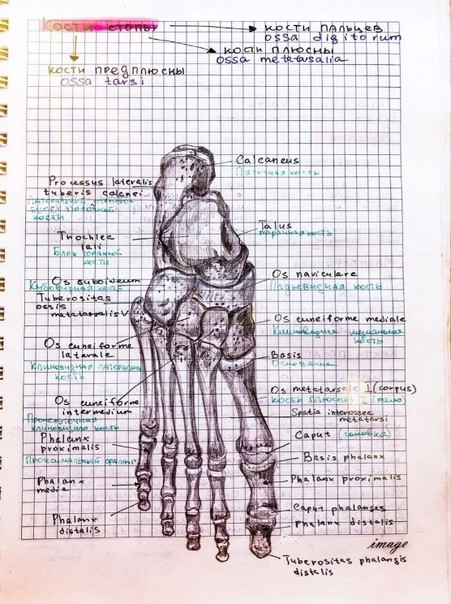 кости стопы
кости пальцев
ossa digitorum
кости плюсны
ossa metatarsalia
кости предплюсны
ossa tarsi
Calcaneus
Пяточная кость
Processus lateralis
tuberis calcanei
кости
Talus
таранная кость
Trochlee
tali
Блок таранной
кости
Os naviculare
Ладьевидная кость
Os cuboideum
Кубовидная кость
Tuberositas
ossis
metatarsalis V
Os cuneiforme mediale
Клиновидная медиальная
кость
Os cuneiforme
laterale
Клиновидная латеральная
кость
Basis
Основание
Os metatarsale 1 (corpus)
кости плюсны 1 тело
Os cuneiforme
intermedium
Промежуточная
клиновидная кость
Spatia interossea
metatarsi
Caput головка
Phalanx
proximalis
Basis phalanx
Phalanx proximalis
Phalanx
media
Caput phalanges
Phalanx distalis
Phalanx
distalis
image
Tuberositas phalangis
distalis